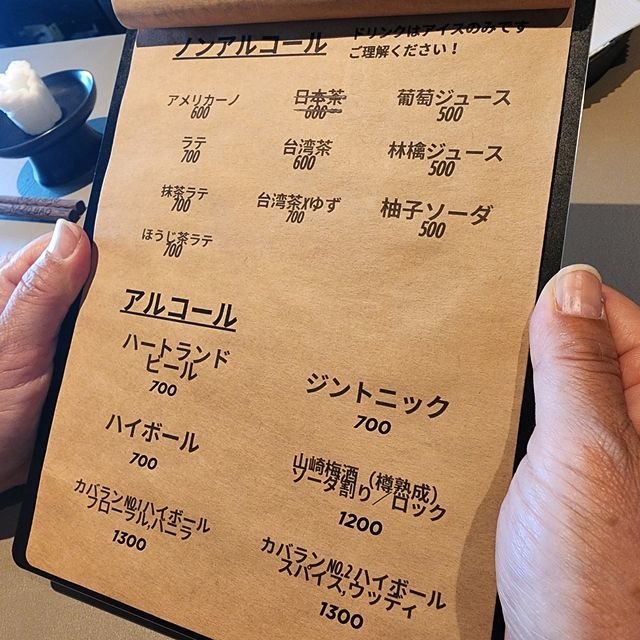 ノンアルコール
ドリンクはアイスのみです
ご理解ください！
アメリカーノ
600
日本茶
600
葡萄ジュース
500
ラテ
700
台湾茶
600
林檎ジュース
500
抹茶ラテ
700
台湾茶Xゆず
700
柚子ソーダ
500
ほうじ茶ラテ
700
アルコール
ハートランド
ビール
700
ジントニック
700
ハイボール
700
山崎梅酒（樽熟成）
ソーダ割り／ロック
1200
カバランNO.1ハイボール
フローラル,バニラ
1300
カバランNO.2ハイボール
スパイス,ウッディ
1300